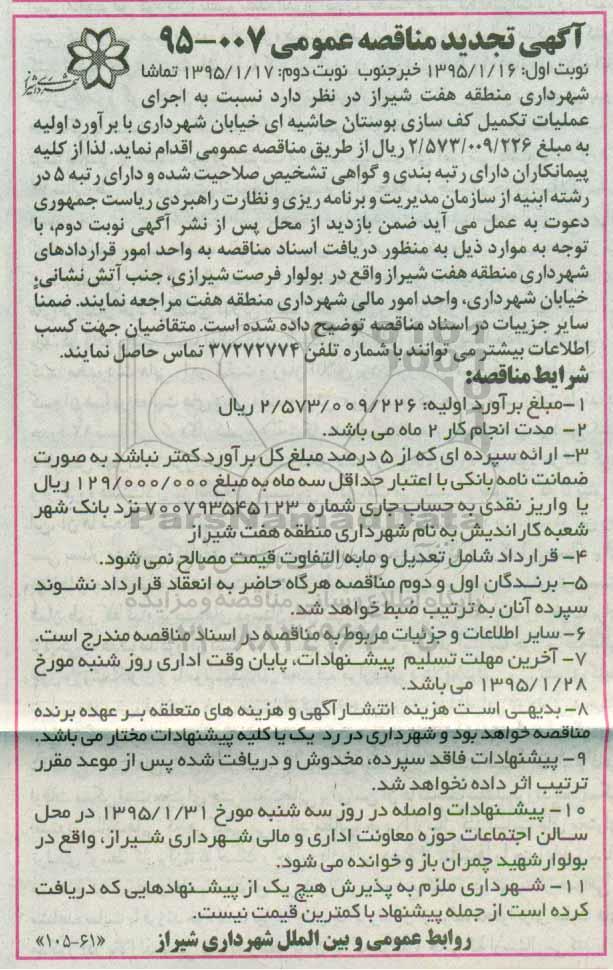 آگهی تجدید مناقصه عمومی ۰۰۷-۹۵
شهرداری شیراز
نوبت اول: ۱۳۹۵/۱/۱۶ خبرجنوب نوبت دوم: ۱۳۹۵/۱/۱۷ تماشا
شهرداری منطقه هفت شیراز در نظر دارد نسبت به اجرای
عملیات تکمیل کف سازی بوستان حاشیه ای خیابان شهرداری با برآورد اولیه
به مبلغ ۲/۵۷۳/۰۰۹/۲۲۶ ریال از طریق مناقصه عمومی اقدام نماید. لذا از کلیه
پیمانکاران دارای رتبه بندی و گواهی تشخیص صلاحیت شده و دارای رتبه ۵ در
رشته ابنیه از سازمان مدیریت و برنامه ریزی و نظارت راهبردی ریاست جمهوری
دعوت به عمل می آید ضمن بازدید از محل پس از نشر آگهی نوبت دوم، با
توجه به موارد ذیل به منظور دریافت اسناد مناقصه به واحد امور قراردادهای
شهرداری منطقه هفت شیراز واقع در بولوار فرصت شیرازی، جنب آتش نشانی،
خیابان شهرداری، واحد امور مالی شهرداری منطقه هفت مراجعه نمایند. ضمنا
سایر جزییات در اسناد مناقصه توضیح داده شده است. متقاضیان جهت کسب
اطلاعات بیشتر می توانند با شماره تلفن ۳۷۲۷۲۷۷۴ تماس حاصل نمایند.
شرایط مناقصه:
۱-مبلغ برآورد اولیه: ۲/۵۷۳/۰۰۹/۲۲۶ ریال
۲- مدت انجام کار ۲ ماه می باشد.
۳- ارائه سپرده ای که از ۵ درصد مبلغ کل برآورد کمتر نباشد به صورت
ضمانت نامه بانکی با اعتبار حداقل سه ماه به مبلغ ۱۲۹/۰۰۰/۰۰۰ ریال
یا واریز نقدی به حساب جاری شماره ۷۰۰۷۹۳۵۴۵۱۲۳ نزد بانک شهر
شعبه کاراندیش به نام شهرداری منطقه هفت شیراز
۴- قرارداد شامل تعدیل و مابه التفاوت قیمت مصالح نمی شود.
۵- برندگان اول و دوم مناقصه هرگاه حاضر به انعقاد قرارداد نشوند
سپرده آنان به ترتیب ضبط خواهد شد.
۶- سایر اطلاعات و جزئیات مربوط به مناقصه در اسناد مناقصه مندرج است.
۷- آخرین مهلت تسلیم پیشنهادات، پایان وقت اداری روز شنبه مورخ
۱۳۹۵/۱/۲۸ می باشد.
۸- بدیهی است هزینه انتشار آگهی و هزینه های متعلقه بر عهده برنده
مناقصه خواهد بود و شهرداری در رد یک یا کلیه پیشنهادات مختار می باشد.
۹- پیشنهادات فاقد سپرده، مخدوش و دریافت شده پس از موعد مقرر
ترتیب اثر داده نخواهد شد.
۱۰- پیشنهادات واصله در روز سه شنبه مورخ ۱۳۹۵/۱/۳۱ در محل
سالن اجتماعات حوزه معاونت اداری و مالی شهرداری شیراز، واقع در
بولوار شهید چمران باز و خوانده می شود.
۱۱- شهرداری ملزم به پذیرش هیچ یک از پیشنهادهایی که دریافت
کرده است از جمله پیشنهاد با کمترین قیمت نیست.
روابط عمومی و بین الملل شهرداری شیراز «۱۰۵-۶۱»